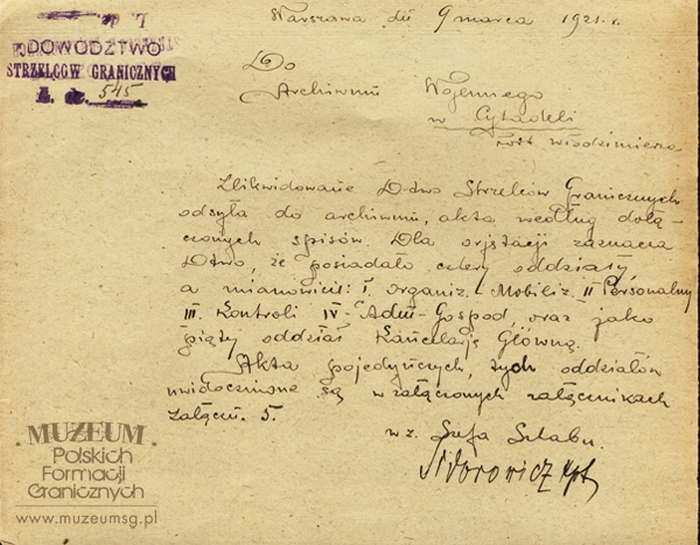 Warszawa dń 9 marca 1921. r.
L. dz.
DOWÓDZTWO
STRZELCÓW GRANICZNYCH
L. dz. 545
Do
Archiwum Wojennego
w Cytadeli
fort włodzimierza
Zlikwidowane D-two Strzelców Granicznych
odsyła do archiwum, akta według dołą-
czonych spisów. Dla orjetacji zaznacza
Dtwo, że posiadało cztery oddziały,
a mianowicie: I. Organiz. - Mobiliz. II Personalny
III. Kontroli IV - Adm - Gospod, oraz jako
piąty oddział Kancelarję Główną.
Akta pojedyńczych, tych oddziałów
uwidocznione są w załączonych załącznikach
załącń. 5.
w z. Szefa Sztabu.
Sidorowicz kpt
. MUZEUM .
Polskich
Formacji
Granicznych
www.muzeumsg.pl